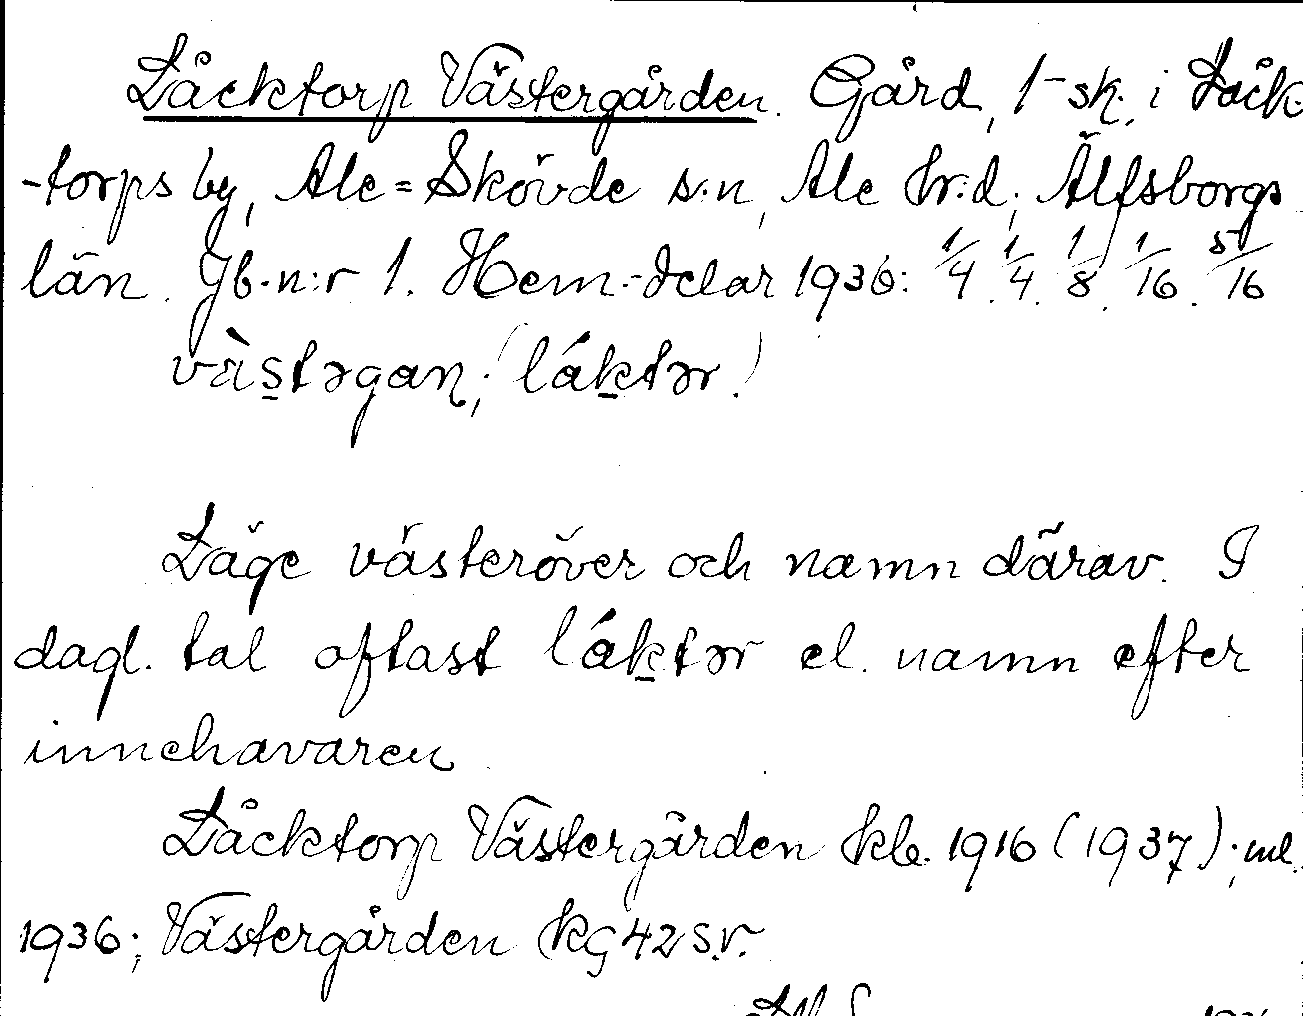 Låcktorp Västergården. Gård, 1-sk. i Låck
-torps by, Ale=Skövde s:n, Ale hr:d; Älfsborgs
län. Jb.n:r 1. Hem.-delar 1936: 1/4. 1/4. 1/8. 1/16. 5/16
vàstəgan; (láktər)
Läge västeröver och namn därav. I
dagl. tal oftast láktər el. namn efter
innehavaren.
Låcktorp Västergården kb. 1916 (1937); ml.
1936; Västergården kg 42 s.v.